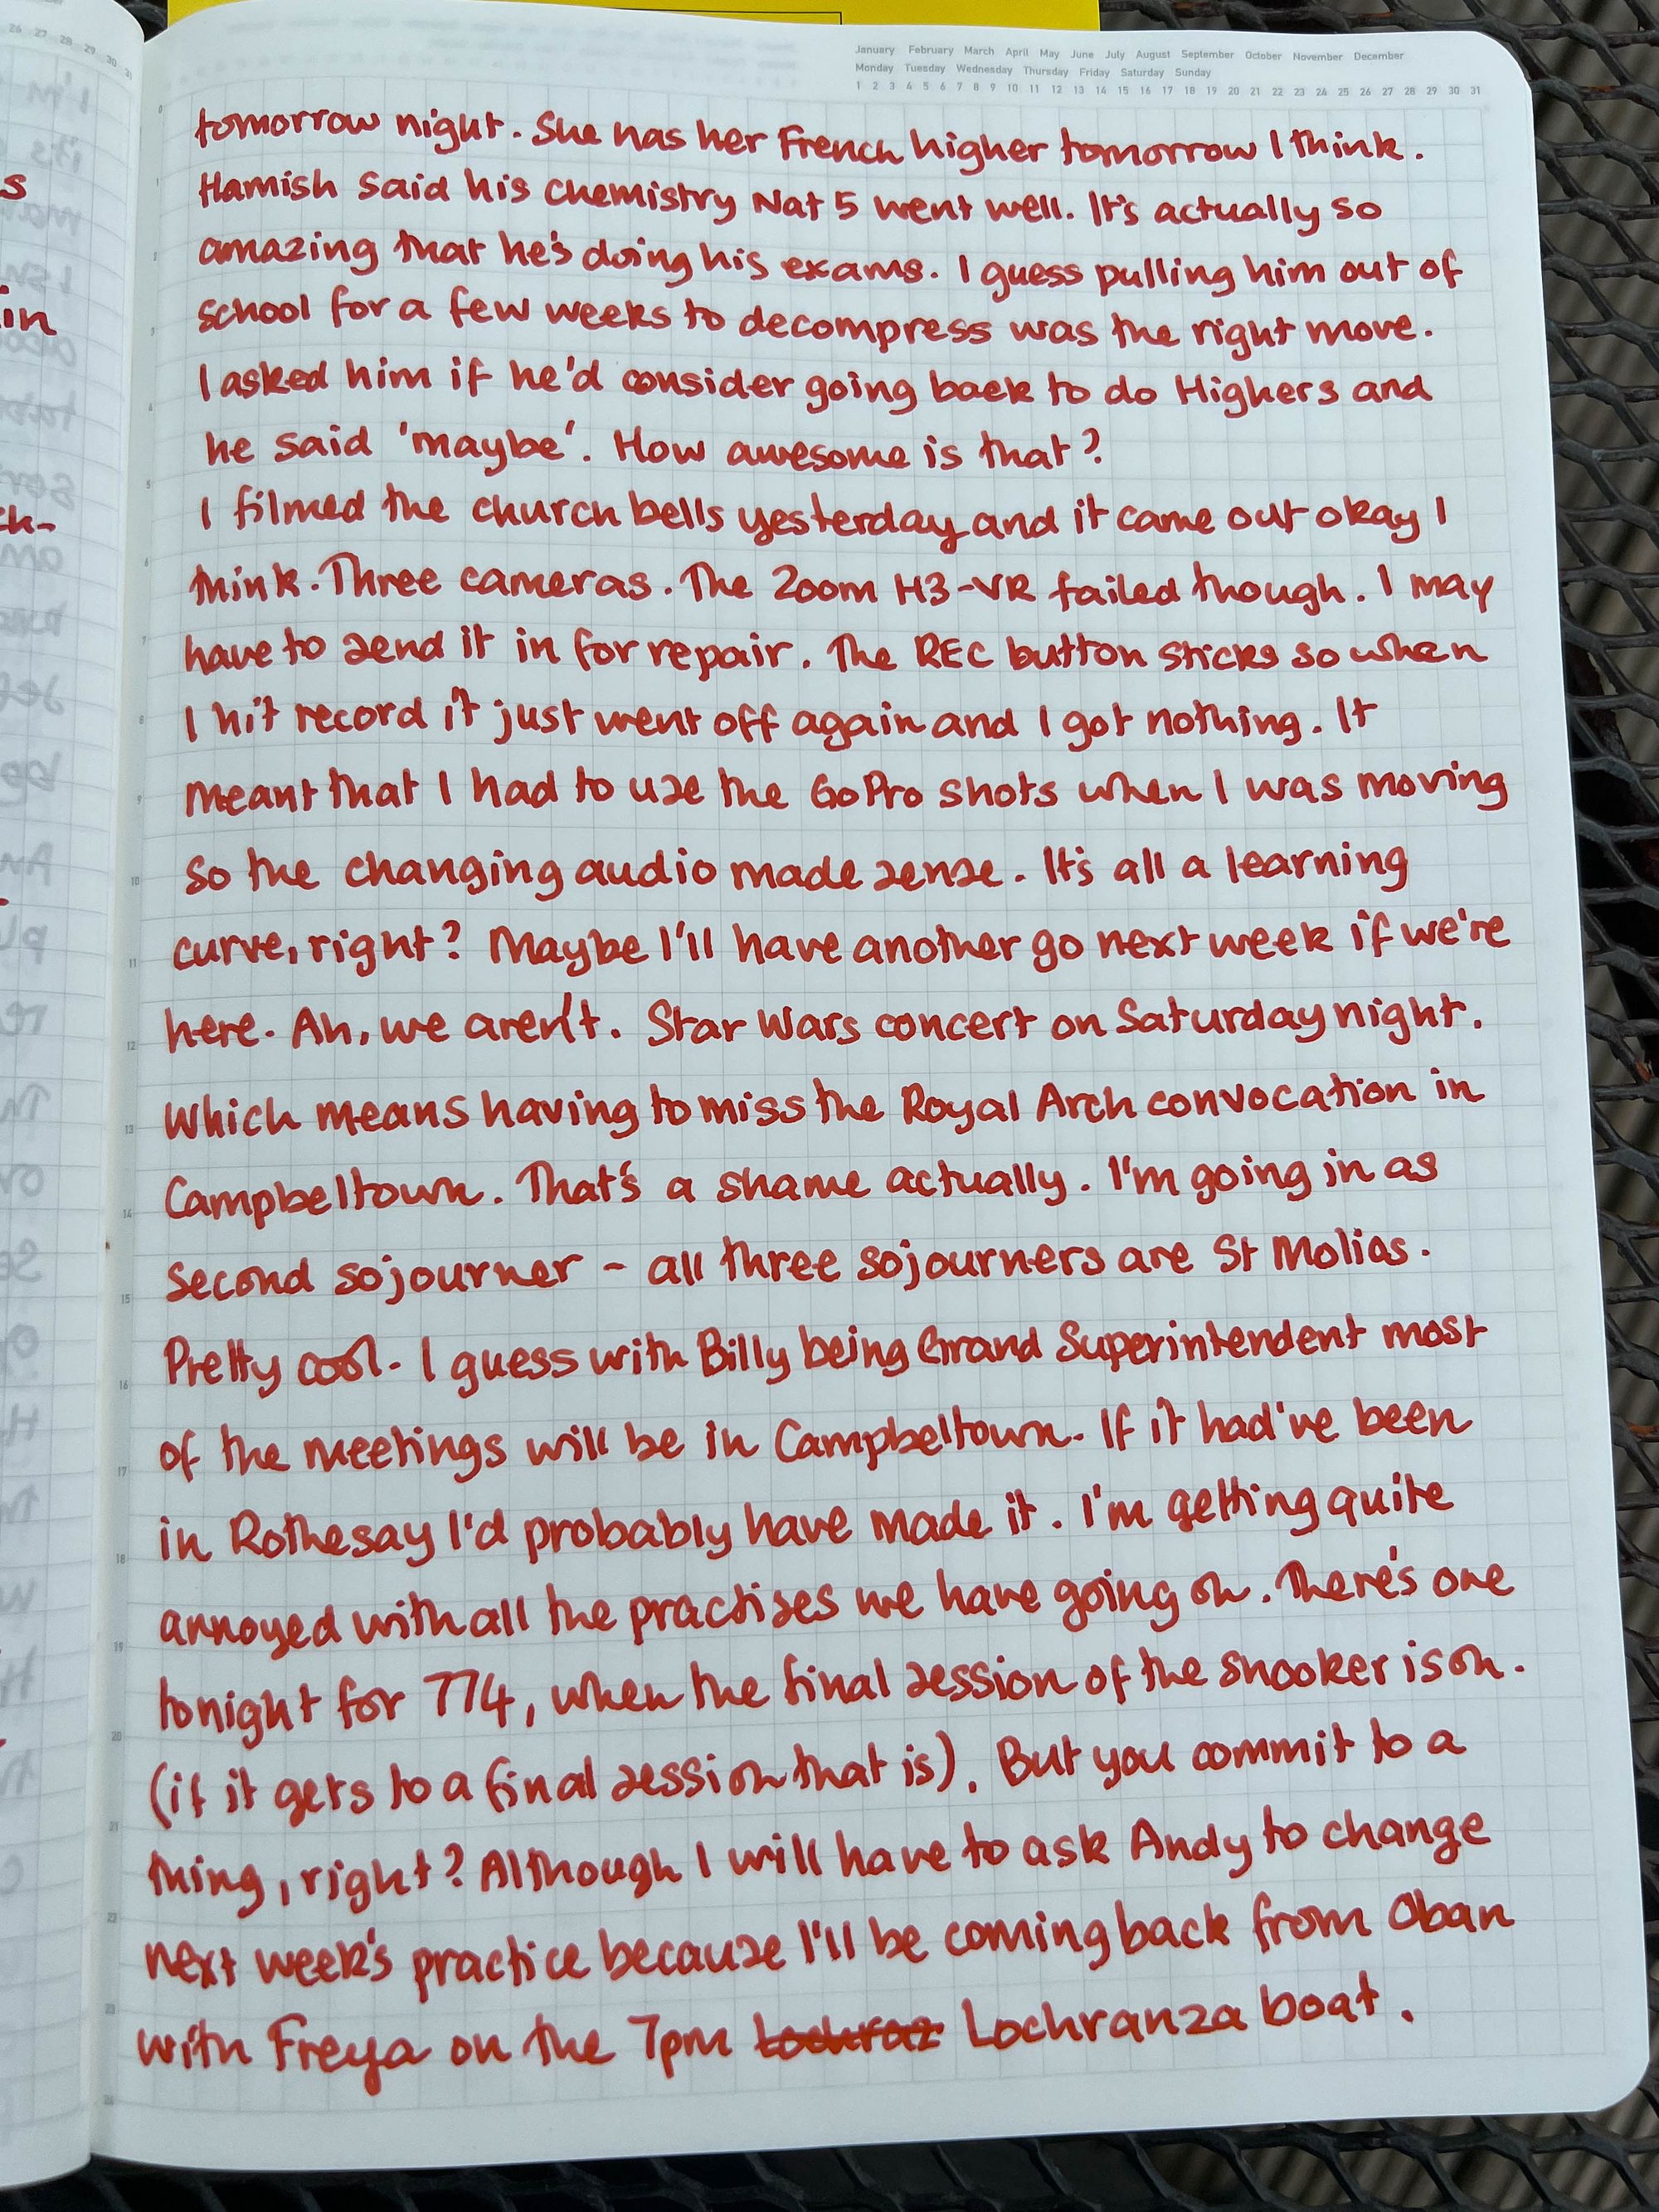 January February March April May June July August September October November December
Monday Tuesday Wednesday Thursday Friday Saturday Sunday
1 2 3 4 5 6 7 8 9 10 11 12 13 14 15 16 17 18 19 20 21 22 23 24 25 26 27 28 29 30 31
tomorrow night. She has her French higher tomorrow I think.
Hamish said his chemistry Nat 5 went well. It's actually so
amazing that he's doing his exams. I guess pulling him out of
school for a few weeks to decompress was the right move.
I asked him if he'd consider going back to do Highers and
he said 'maybe'. How awesome is that?
I filmed the church bells yesterday and it came out okay I
think. Three cameras. The Zoom H3-VR failed though. I may
have to send it in for repair. The REC button sticks so when
I hit record it just went off again and I got nothing. It
meant that I had to use the GoPro shots when I was moving
so the changing audio made sense. It's all a learning
curve, right? Maybe I'll have another go next week if we're
here. Ah, we aren't. Star Wars concert on Saturday night.
Which means having to miss the Royal Arch convocation in
Campbeltown. That's a shame actually. I'm going in as
second sojourner - all three sojourners are St Molios.
Pretty cool. I guess with Billy being Grand Superintendent most
of the meetings will be in Campbeltown. If it had've been
in Rothesay I'd probably have made it. I'm getting quite
annoyed with all the practises we have going on. There's one
tonight for 774, when the final session of the snooker is on.
(if it gets to a final session that is). But you commit to a
thing, right? Although I will have to ask Andy to change
next week's practice because I'll be coming back from Oban
with Freya on the 7pm Lochranza boat.